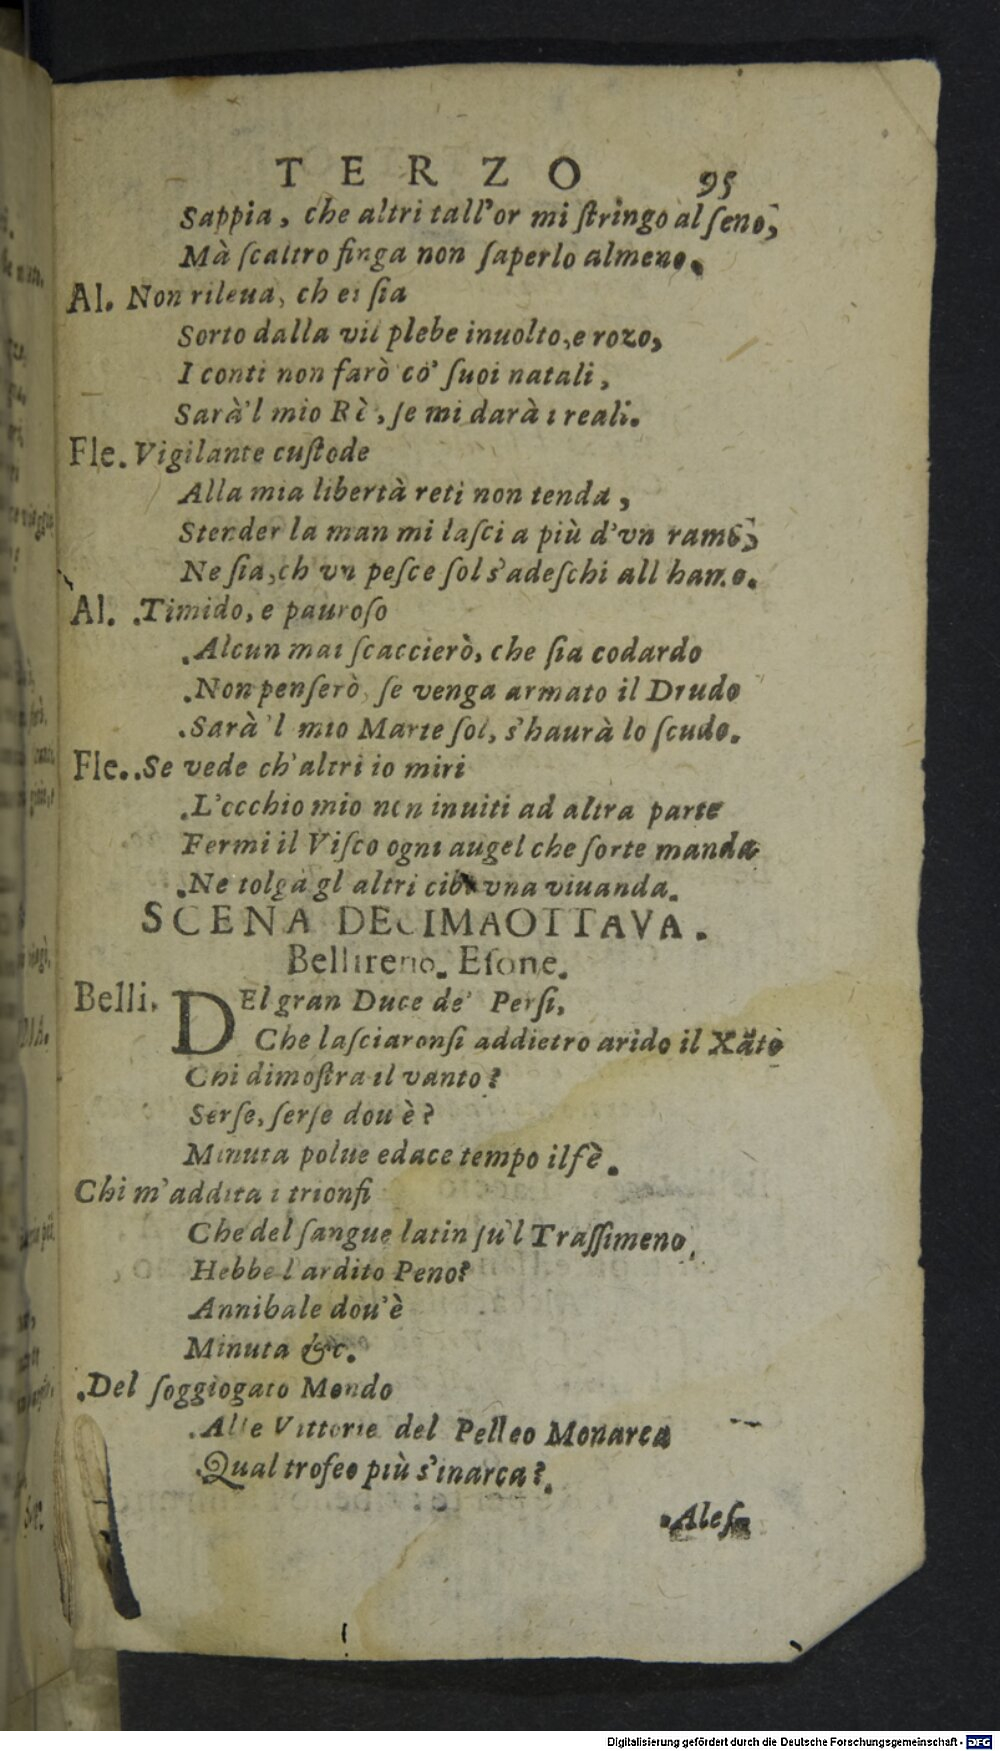 TERZO 95
Sappia, che altri tall'or mi ſtringo al ſeno,
Mà ſcaltro finga non ſaperlo almeno.
Al. Non rileua, ch ei ſia
Sorto dalla vil plebe inuolto, e rozo,
I conti non farò co' ſuoi natali,
Sarà'l mio Rè, ſe mi darà i reali.
Fle. Vigilante cuſtode
Alla mia libertà reti non tenda,
Stender la man mi laſci a più d'vn ramo,
Ne ſia, ch vn peſce ſol s'adeſchi all hamo.
Al. Timido, e pauroſo
Alcun mai ſcaccierò, che ſia codardo
Non penſerò, ſe venga armato il Drudo
Sarà'l mio Marte ſol, s'haurà lo ſcudo.
Fle. Se vede ch'altri io miri
L'occhio mio non inuiti ad altra parte
Fermi il Viſco ogni augel che ſorte manda
Ne tolga gl altri cibi vna viuanda.
SCENA DECIMAOTTAVA.
Bellireno. Eſone.
Belli. DEl gran Duce de' Perſi,
Che laſciaronſi addietro arido il Xăto
Chi dimoſtra il vanto?
Serſe, ſerſe dou'è?
Minuta polue edace tempo il fè.
Chi m'addita i trionfi
Che del ſangue latin ſu'l Traſſimeno,
Hebbe l'ardito Peno?
Annibale dou'è
Minuta &c.
Del ſoggiogato Mondo
Alle Vittorie del Pelleo Monarca
Qual trofeo più s'inarca?
Aleſ-
Digitalisierung gefördert durch die Deutsche Forschungsgemeinschaft - DFG